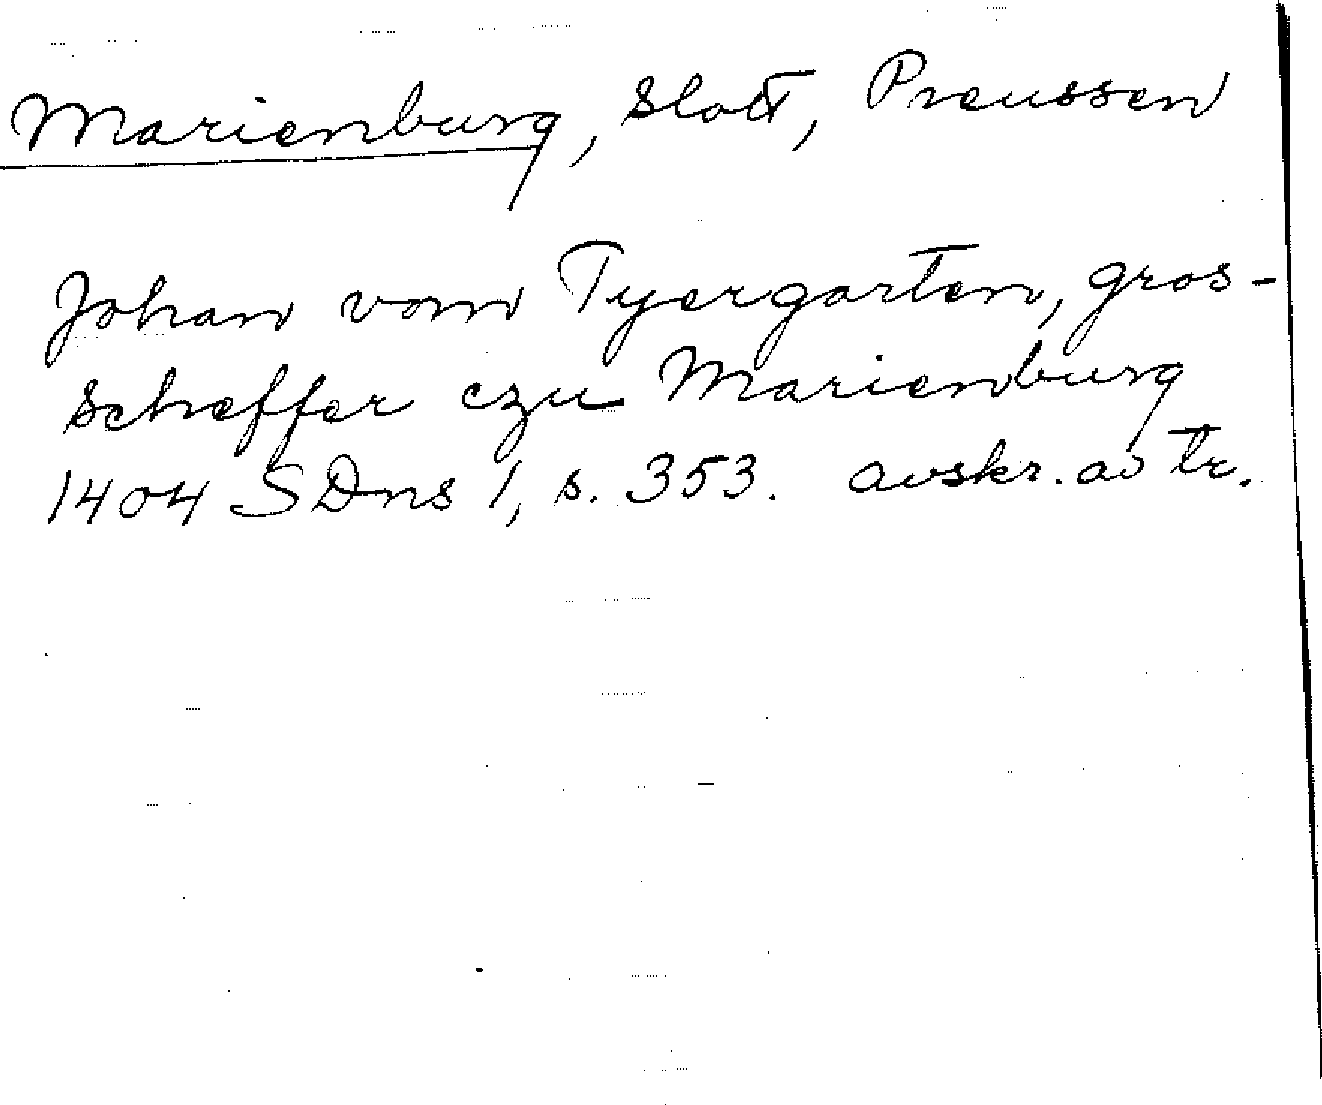 Marienburg, slott, Preussen
Johan vom Tyergarten, gros-
scheffer czu Marienburg
1404 SDns 1, s. 353. avskr. av tr.